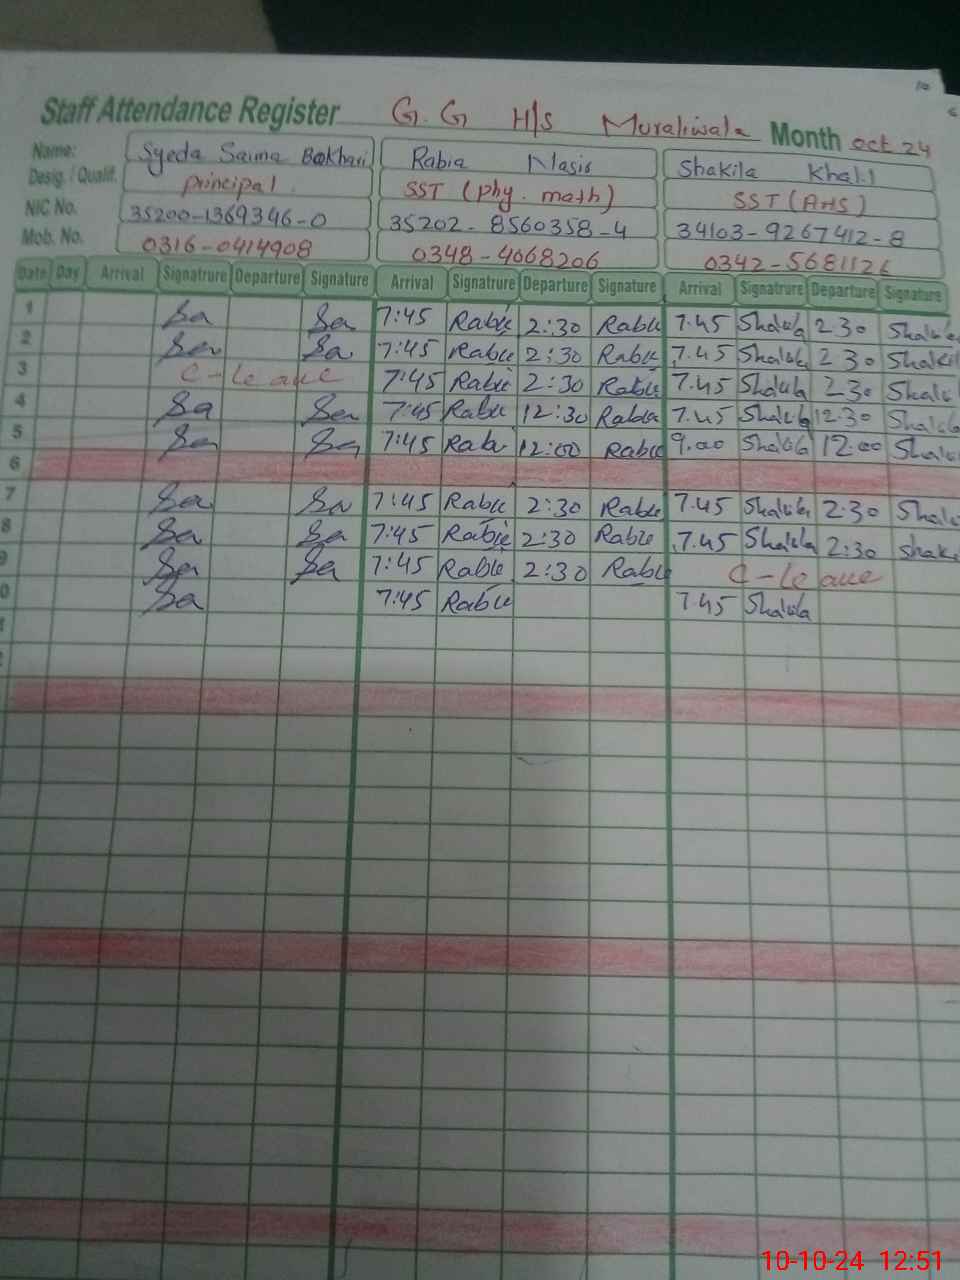 Staff Attendance Register G.G H/S Muraliwala Month oct 24
Name: Syeda Saima Bokhari Rabia Nasir Shakila Khalil
Desig. / Qualif. principal SST (phy. math) SST (AHS)
NIC No. 35200-1369346-0 35202-8560358-4 34103-9267412-8
Mob. No. 0316-0414908 0348-4068206 0342-5681126
Date Day Arrival Signatrure Departure Signature Arrival Signatrure Departure Signature Arrival Signatrure Departure Signature
1 Sa Sa 7:45 Rabie 2:30 Rabie 7.45 Shakila 2.30 Shakila
2 Sa Sa 7:45 Rabie 2:30 Rabie 7.45 Shakila 2 30 Shakil
3 C-leave 7:45 Rabie 2:30 Rabie 7.45 Shakila 2.30 Shakil
4 Sa Sa 7:45 Rabie 12:30 Rabia 7.45 Shakila 12.30 Shakila
5 Sa Sa 7:45 Rabi 12:00 Rabie 9.00 Shakila 12.00 Shakil
6
7 Sa Sa 7:45 Rabie 2:30 Rabie 7.45 Shakila 2.30 Shak
8 Sa Sa 7:45 Rabie 2:30 Rabie 7.45 Shakila 2:30 Shaki
9 Sa Sa 7:45 Rabie 2:30 Rabie C-leave
0 Sa 7:45 Rabie 7.45 Shakila
10-10-24 12:51